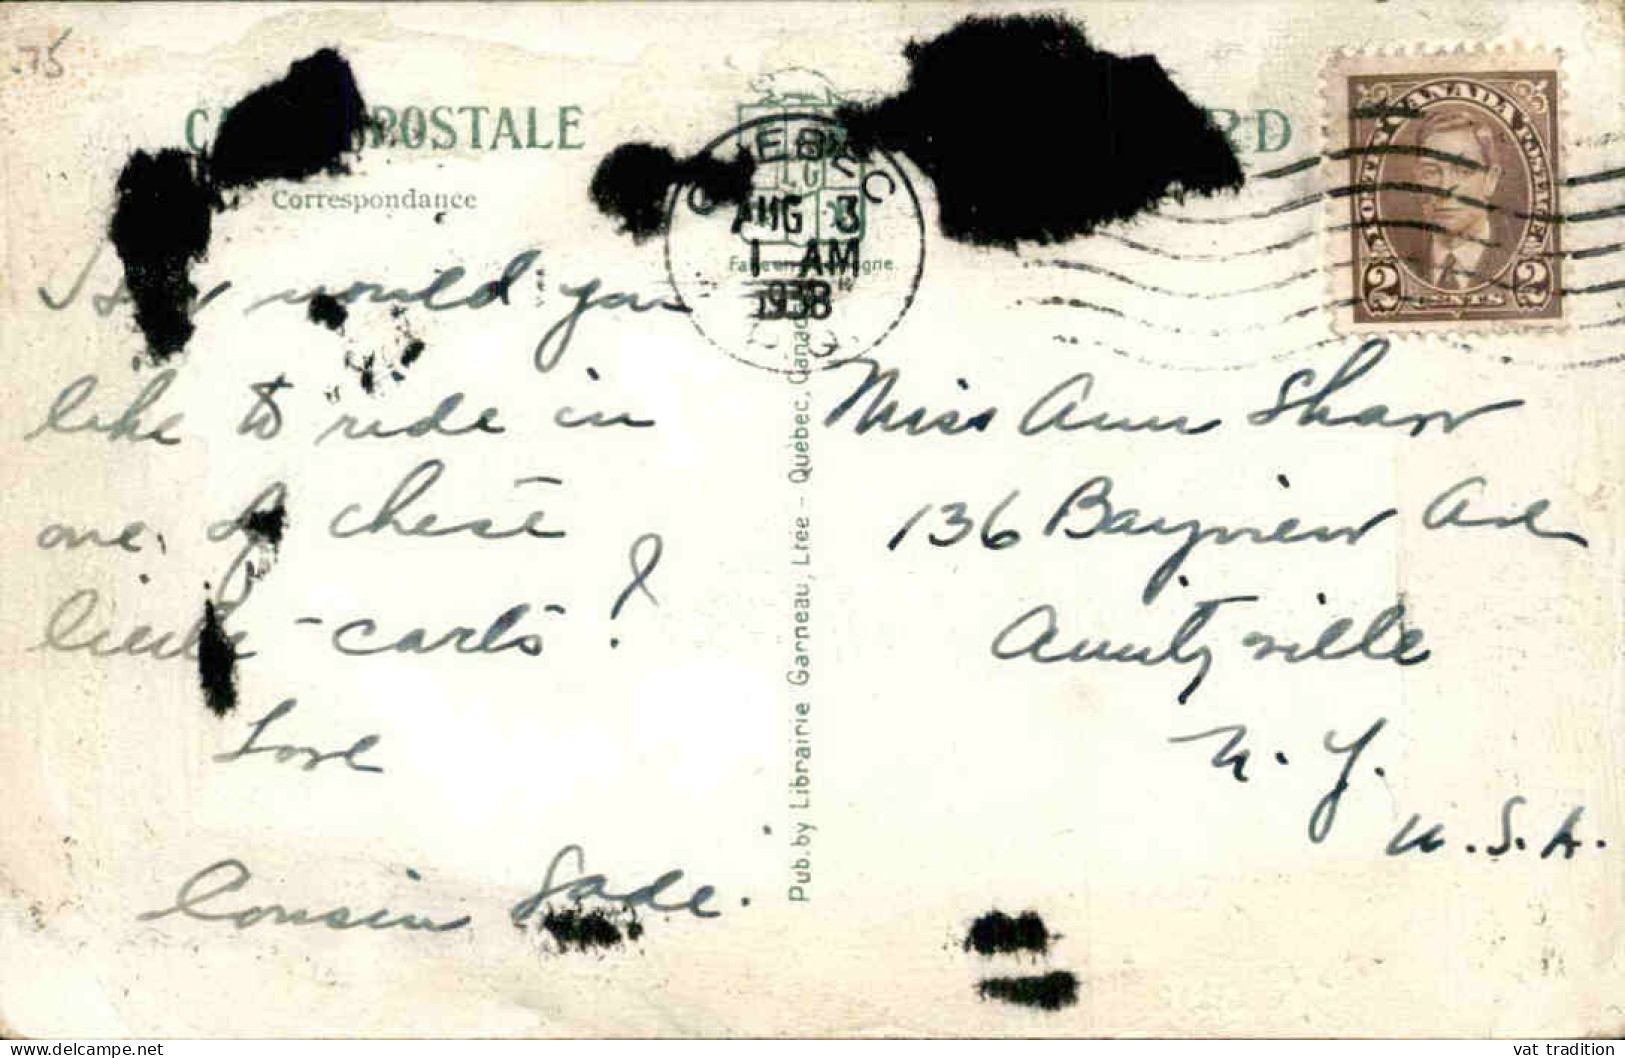 .75
POSTALE
Correspondance
QUEBEC
AUG 3
1 AM
1938
CANADA POSTAGE
POSTES
2 CENTS 2
How would you
like to ride in
one of these
little carts?
Love
Cousin Sade.
Pub. by Librairie Garneau, Ltée - Québec, Canada
Miss Ann Shaw
136 Bayview Ave
Amityville
N. Y.
U.S.A.
vat tradition